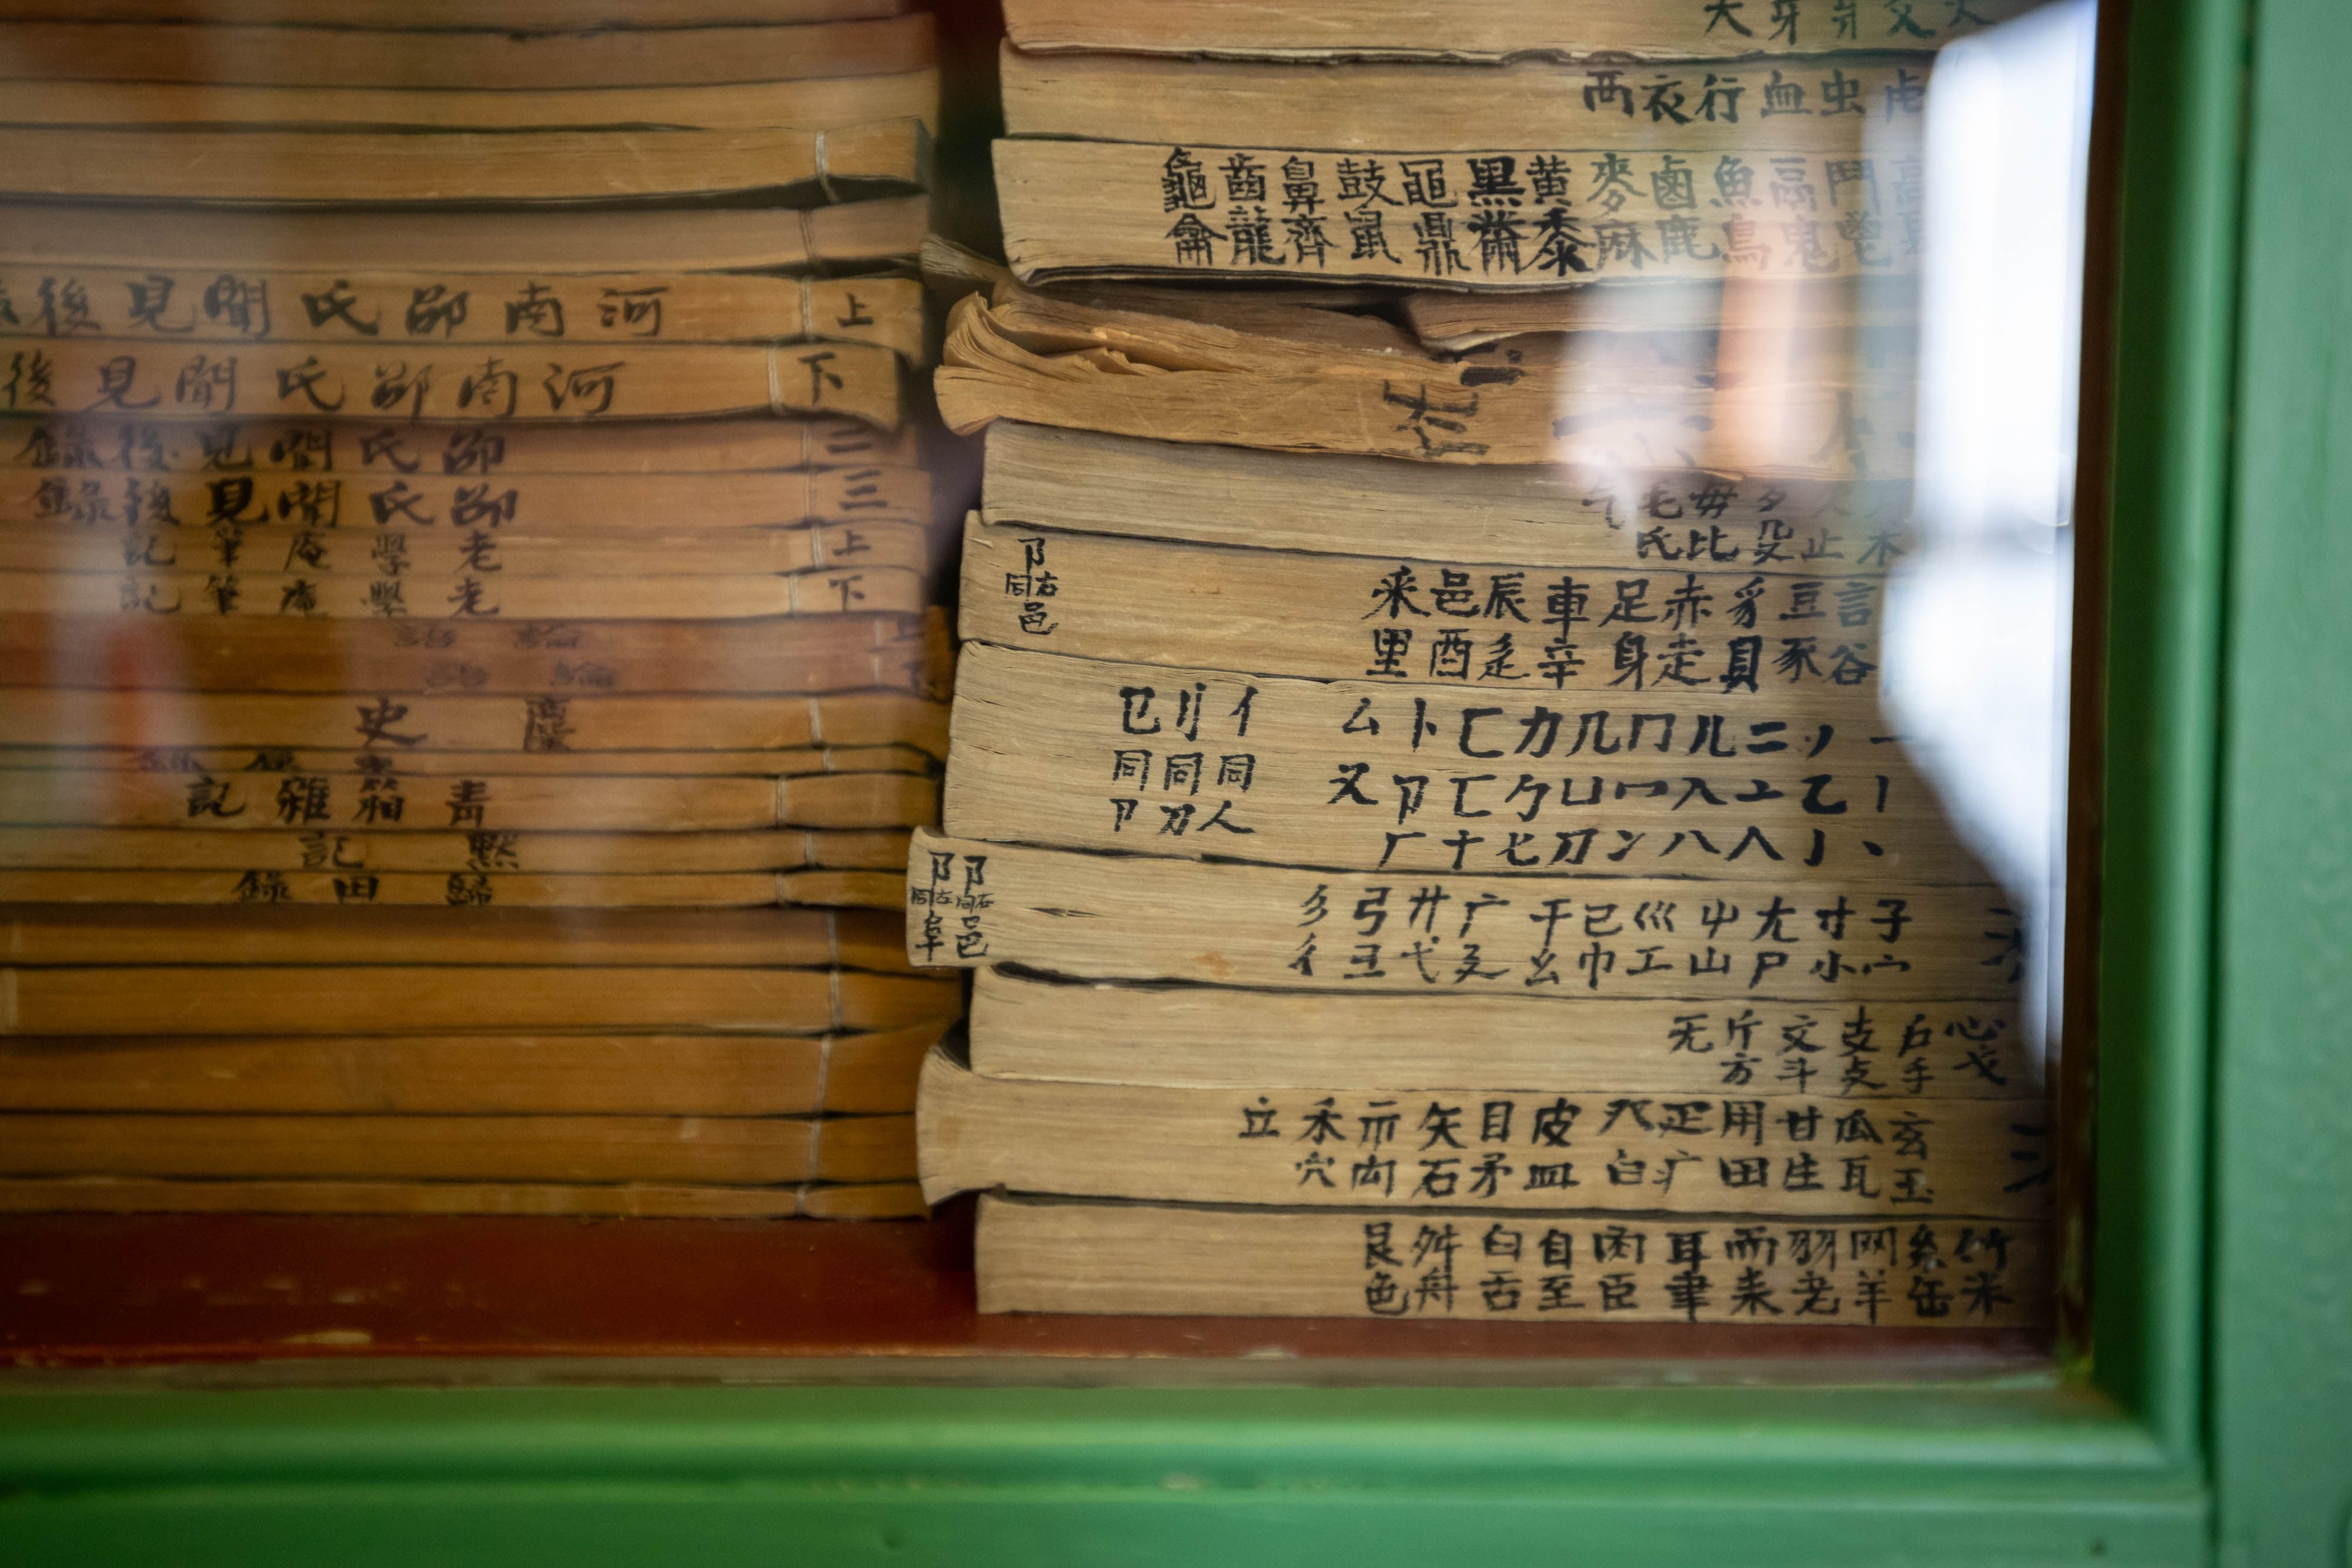 上 河南邵氏聞見後
下 河南邵氏聞見後
二 邵氏聞見後錄
三 邵氏聞見後錄
上 老學庵筆記
下 老學庵筆記
塵史
青箱雜記
默記
歸田錄
虫血行衣襾
鬥鬲魚鹵麥黃黑黽鼓鼻齒龜
鬼鳥鹿麻黍黹鼎鼠齊龍龠
毋毛气
止殳比氏
言豆豸赤足車辰邑釆
谷豕貝走身辛辵酉里
阝
右同
邑
一丿二儿冂几力匚卜厶
丨乙亠入冖凵勹匸卩又
丶亅人八冫刀匕十厂
亻刂㔾
同同同
人刀卩
子寸尢屮巛己干广廾弓彡
宀小尸山工巾幺廴弋彐彳
阝阝
右同左同
邑阜
心戶支文斤无
戈手攴斗方
玄瓜甘用疋癶皮目矢示禾立
玉瓦生田疒白皿矛石禸穴
竹糸网羽而耳肉自臼舛艮
米缶羊老耒聿臣至舌舟色